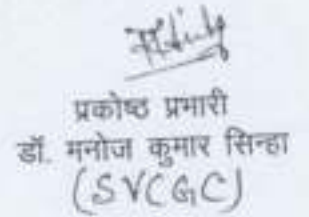 प्रकोष्ठ प्रभारी
डॉ. मनोज कुमार सिन्हा
(SVCGC)